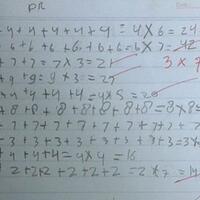 PR
4+4+4+4+4 = 4×6 = 24
6+6+6+6+6+6=6×7=42
+7+7=7×3=21 3×7
+9+9=9×3=27
+4+4+4+4=4×5=20
+8+8+8+8+8+8+8=8×8=
7+7+7+7+7+7+7+7+
+3+3+3+3+3+3+3=3×
4+4+4=4×4=16
2+2+2+2+2+2=2×7=14